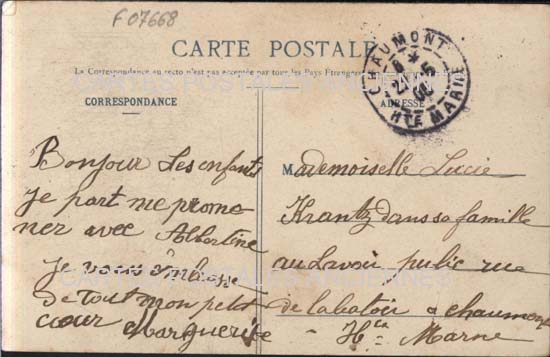 F 07668
CARTE POSTALE
La Correspondance au recto n'est pas acceptée par tous les Pays Étrangers
CORRESPONDANCE
ADRESSE
CHAUMONT
6 *
21 - 5
HTE MARNE
Bonjour Les enfants
je part me prome
ner avec Albertine
je vous embrasse
de tout mon petit
cœur Marguerite
Mademoiselle Lucie
Krantz dans sa famille
au Lavoir pulic rue
de labatoir a chaumont
Hte Marne
CARTES POSTALES ANCIENNES